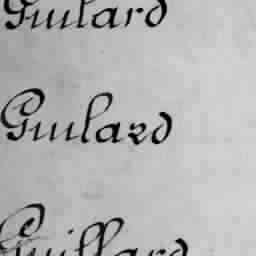 Guilard
Guilard
Guillard